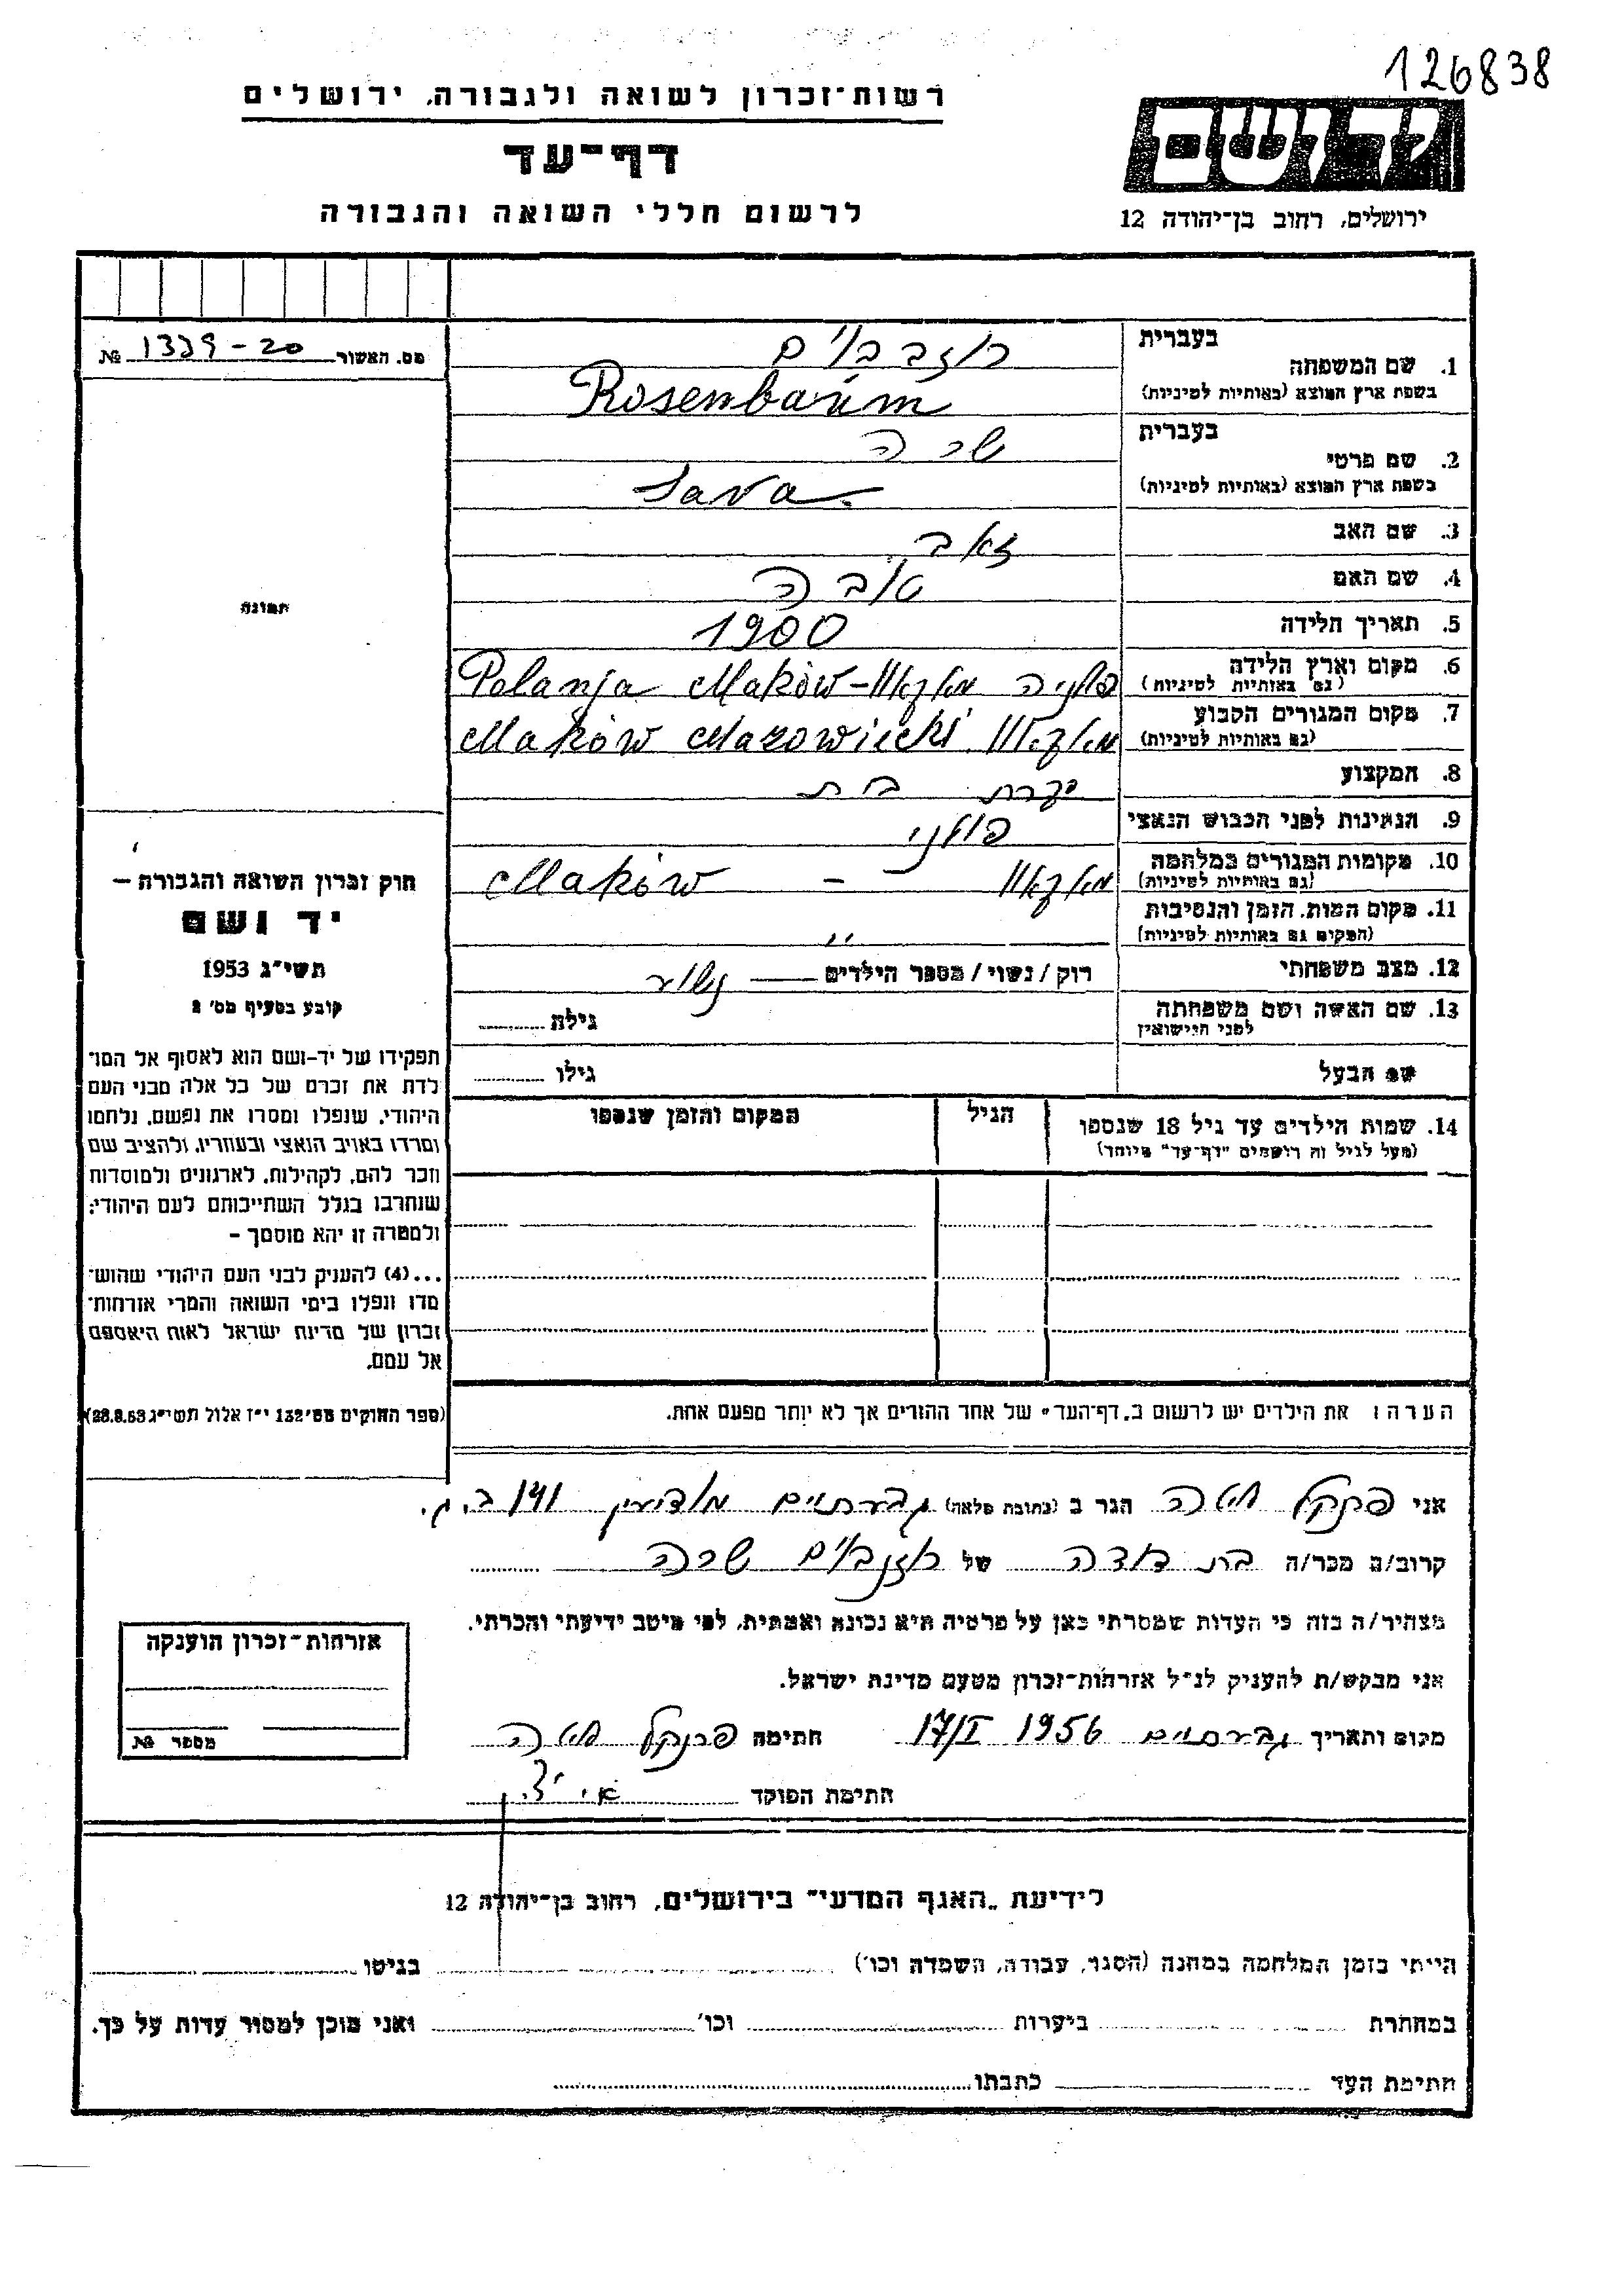 126838
רשות־זכרון לשואה ולגבורה, ירושלים
דף־עד
לרשום חללי השואה והגבורה
יד ושם
ירושלים, רחוב בן־יהודה 12
מס. האשור 1339-20 №
בעברית
1. שם המשפחה
בשפת ארץ המוצא (באותיות לטיניות)
Rosenbaum
בעברית שרה
2. שם פרטי
בשפת ארץ המוצא (באותיות לטיניות) Sara
3. שם האב זאב
4. שם האם טובה
5. תאריך הלידה 1900
6. מקום וארץ הלידה
(גם באותיות לטיניות) פולניה מאקאוו - Maków Polanja
7. מקום המגורים הקבוע
(גם באותיות לטיניות) מאקאוו Maków Mazowiecki
8. המקצוע עקרת בית
9. הנתינות לפני הכבוש הנאצי פולני
10. מקומות המגורים במלחמה
(גם באותיות לטיניות) מאקאוו - Maków
11. מקום המות, הזמן והנסיבות
(המקום גם באותיות לטיניות) "
12. מצב משפחתי רוק/נשוי/מספר הילדים נשוי
13. שם האשה ושם משפחתה
לפני הנישואין
גילה
שם הבעל גילו
14. שמות הילדים עד גיל 18 שנספו
(מעל לגיל זה רושמים "דף־עד" מיוחד)
הגיל
המקום והזמן שנספו
תמונה
חוק זכרון השואה והגבורה –
יד ושם
תשי"ג 1953
קובע בסעיף מס' 2
תפקידו של יד-ושם הוא לאסוף אל המו־
לדת את זכרם של כל אלה מבני העם
היהודי, שנפלו ומסרו את נפשם, נלחמו
ומרדו באויב הנאצי ובעוזריו, ולהציב שם
וזכר להם, לקהילות, לארגונים ולמוסדות
שנחרבו בגלל השתייכותם לעם היהודי;
ולמטרה זו יהא מוסמך –
...(4) להעניק לבני העם היהודי שהוש־
מדו ונפלו בימי השואה והמרי אזרחות־
זכרון של מדינת ישראל לאות היאספם
אל עמם.
(ספר החוקים מס' 132 י"ז אלול תשי"ג 28.8.53)
הערה: את הילדים יש לרשום ב"דף־העד" של אחד ההורים אך לא יותר מפעם אחת.
אני פרנקל חיה הגר ב (כתובת מלאה) גבעתיים מודיעין
קרוב/ה מכר/ה בת דודה של רוזנבוים שרה
מצהיר/ה בזה כי העדות שמסרתי כאן על פרטיה היא נכונה ואמתית, לפי מיטב ידיעתי והכרתי.
אני מבקש/ת להעניק לנ"ל אזרחות־זכרון מטעם מדינת ישראל.
מקום ותאריך גבעתיים 17/I 1956 חתימה פרנקל חיה
חתימת הפוקד
אזרחות־זכרון הוענקה
מספר №
לידיעת "האגף המדעי" בירושלים, רחוב בן־יהודה 12
הייתי בזמן המלחמה במחנה (הסגר, עבודה, השמדה וכו') בגיטו
במחתרת ביערות וכו' ואני מוכן למסור עדות על כך.
חתימת העד כתבתו